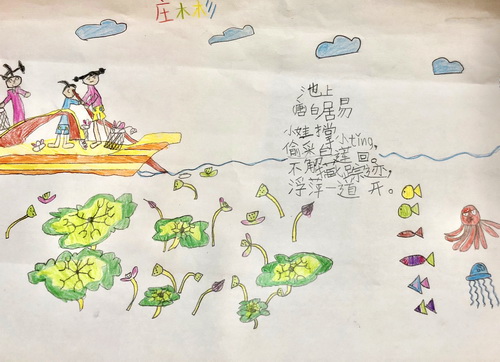 庄木杉
池上
唐白居易
小娃撑小ting,
偷采白莲回。
不解藏踪迹,
浮萍一道 开。